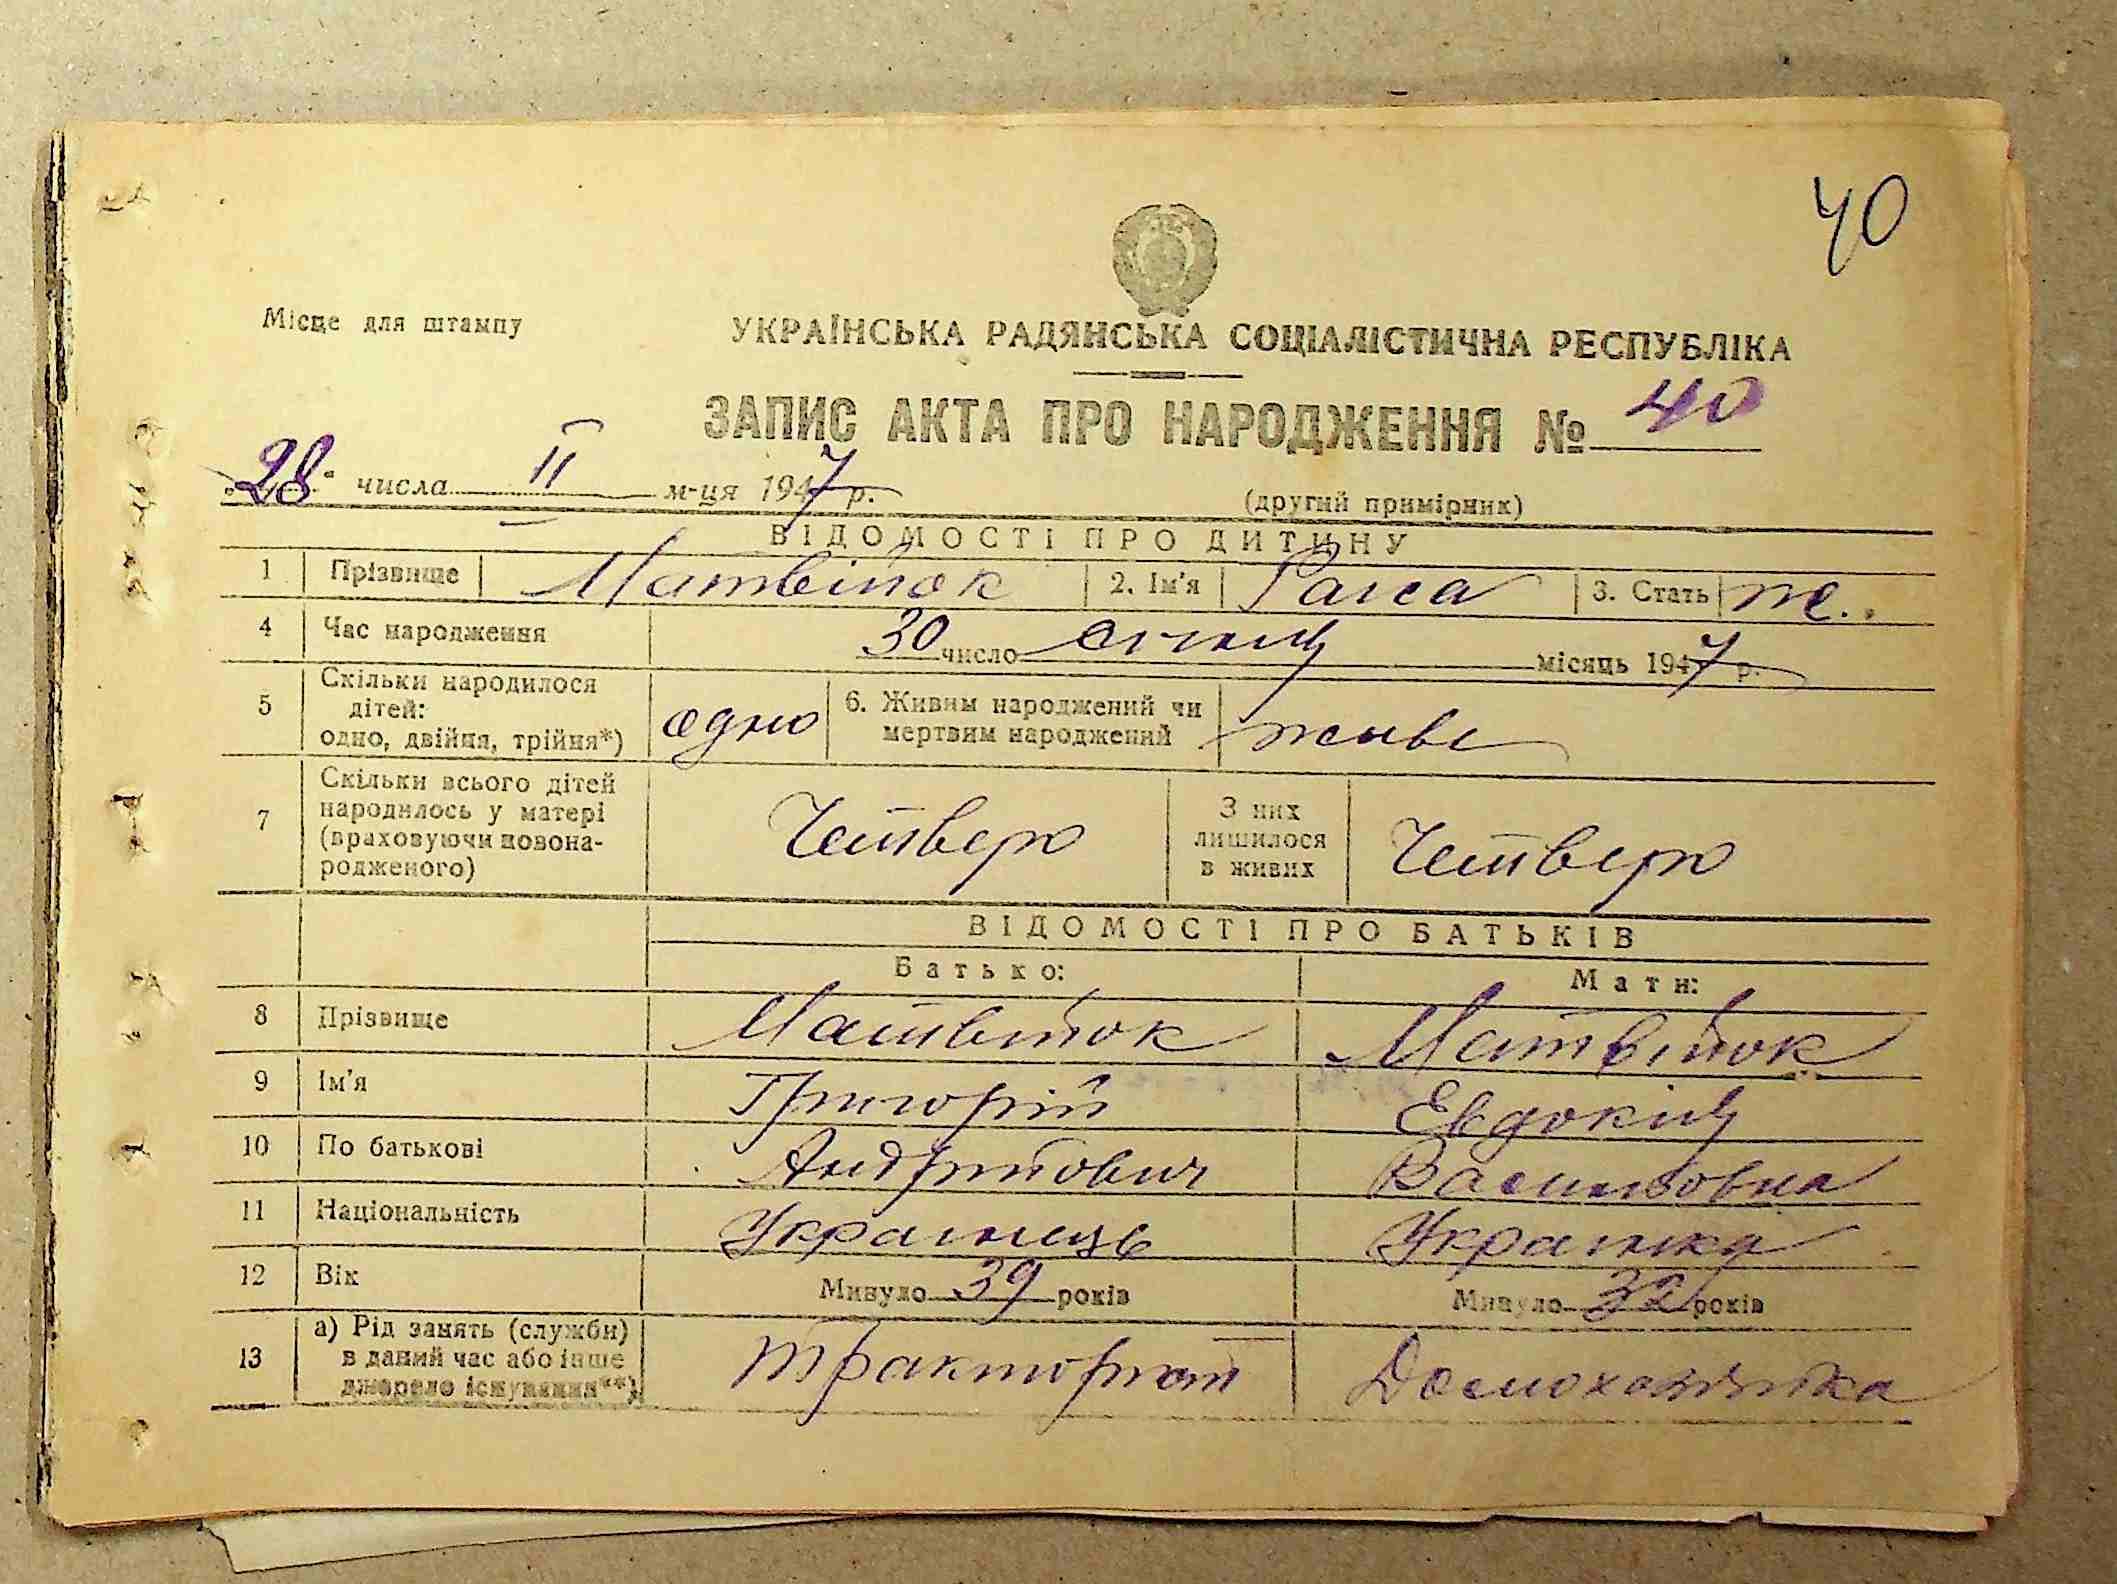 40
Місце для штампу
УКРАЇНСЬКА РАДЯНСЬКА СОЦІАЛІСТИЧНА РЕСПУБЛІКА
ЗАПИС АКТА ПРО НАРОДЖЕННЯ № 40
„28" числа II м-ця 1947 р.
(другий примірник)
ВІДОМОСТІ ПРО ДИТИНУ
1 Прізвище Матвійок 2. Ім'я Раиса 3. Стать ж.
4 Час народження 30 число січня місяць 1947 р.
5 Скільки народилося
дітей:
одно, двійня, трійня*) одно
6. Живим народжений чи
мертвим народжений живе
7 Скільки всього дітей
народилось у матері
(враховуючи новона-
родженого) Четверо
З них
лишилося
в живих Четверо
ВІДОМОСТІ ПРО БАТЬКІВ
Батько: Мати:
8 Прізвище Матвійок Матвійок
9 Ім'я Григорій Евдокія
10 По батькові Андрійович Василовна
11 Національність Украінець Украінка
12 Вік Минуло 39 років Минуло 32 років
13 а) Рід занять (служби)
в даний час або інше
джерело існування**) тракторист Домохозяйка